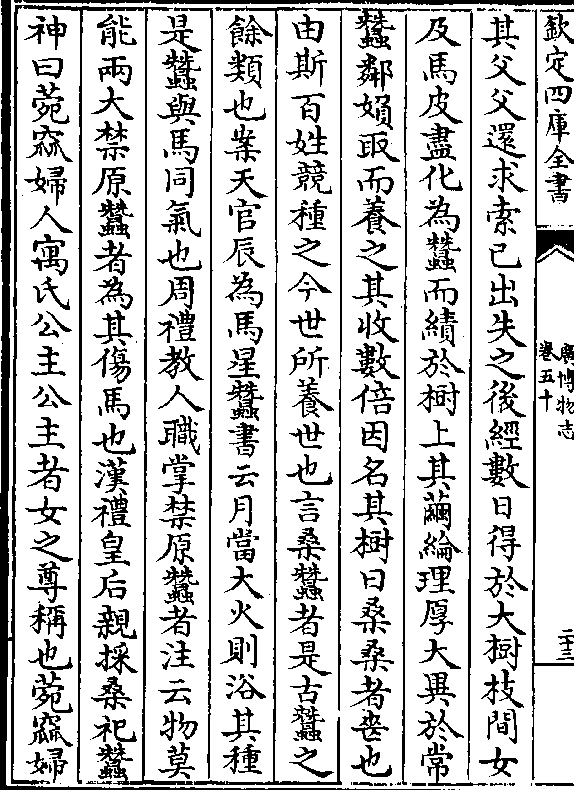 欽定四庫全書
廣博物志
卷五十
二十三
其父父還求索已出失之後經數日得於大樹枝間女
及馬皮盡化為蠶而績於樹上其繭綸理厚大異於常
蠶鄰婦取而養之其收數倍因名其樹曰桑桑者喪也
由斯百姓競種之今世所養世也言桑蠶者是古蠶之
餘類也案天官辰為馬星蠶書云月當大火則浴其種
是蠶與馬同氣也周禮教人職掌禁原蠶者注云物莫
能兩大禁原蠶者為其傷馬也漢禮皇后親採桑祀蠶
神曰菀窳婦人寓氏公主公主者女之尊稱也菀窳婦